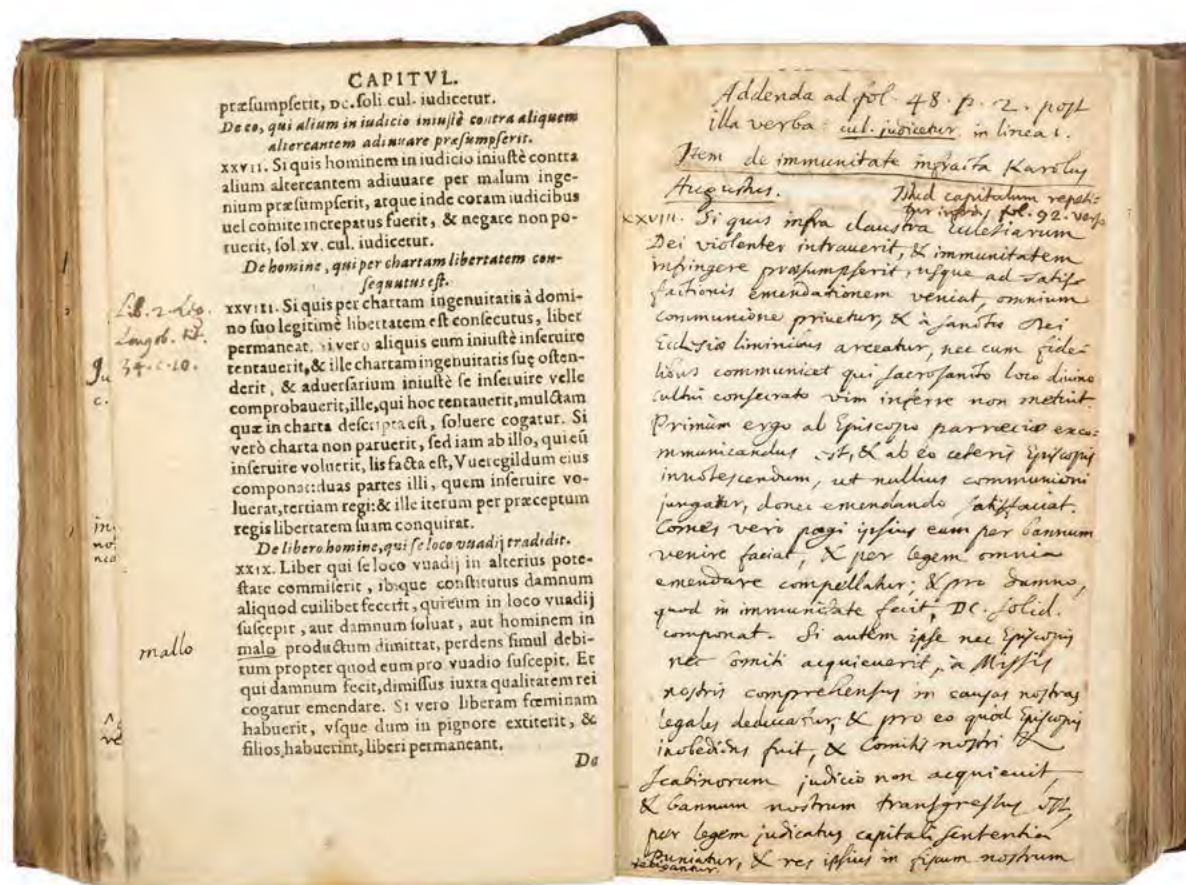 CAPITVL.
præsumpserit, DC. soli. cul. iudicetur.
De eo, qui alium in iudicio iniustè contra aliquem
altercantem adiuuare præsumpserit.
XXVII. Si quis hominem in iudicio iniustè contra
alium altercantem adiuuare per malum inge-
nium præsumpserit, atque inde coram iudicibus
uel comite increpatus fuerit, & negare non po-
tuerit, sol. xv. cul. iudicetur.
De homine, qui per chartam libertatem con-
sequutus est.
XXVIII. Si quis per chartam ingenuitatis à domi-
no suo legitimè libertatem est consecutus, liber
permaneat. Si vero aliquis eum iniustè inseruire
tentauerit, & ille chartam ingenuitatis suę osten-
derit, & aduersarium iniustè se inseruire velle
comprobauerit, ille, qui hoc tentauerit, mulctam
quæ in charta descripta est, soluere cogatur. Si
verò charta non paruerit, sed iam ab illo, qui eū
inseruire voluerit, lis facta est, Vueregildum eius
componat: duas partes illi, quem inseruire vo-
luerat, tertiam regi: & ille iterum per præceptum
regis libertatem suam conquirat.
De libero homine, qui se loco vuadij tradidit.
XXIX. Liber qui se loco vuadij in alterius pote-
state commiserit, ibique constitutus damnum
aliquod cuilibet fecerit, qui eum in loco vuadij
suscepit, aut damnum soluat, aut hominem in
malo productum dimittat, perdens simul debi-
tum propter quod eum pro vuadio suscepit. Et
qui damnum fecit, dimissus iuxta qualitatem rei
cogatur emendare. Si vero liberam fœminam
habuerit, vsque dum in pignore extiterit, &
filios habuerint, liberi permaneant.
Da
Lib. 2. Leg.
Longob. tit.
34. c. 10.
Ju
c.
in
no
nco
mallo
ve
Addenda ad fol. 48. p. 2. post
illa verba cul. judicetur in linea 1.
Item de immunitate infracta Karolus
Augustus.
Istud capitulum repeti-
tur infra fol. 92. verso
XXVIII. Si quis infra claustra Ecclesiarum
Dei violenter intrauerit, & immunitatem
infringere præsumpserit, usque ad satis
factionis emendationem veniat, omnium
communione priuetur, & à sanctæ Dei
Ecclesiæ liminibus arceatur, nec cum fide-
libus communicet qui sacrosancto loco divino
cultui consecrato vim inferre non metuit.
Primùm ergo ab Episcopo parrœciæ exco-
mmunicandus est, & ab eo ceteris Episcopis
innotescendum, ut nullius communioni
jungatur, donec emendando satisfaciat.
Comes verò pagi ipsius eum per bannum
venire faciat, & per legem omnia
emendare compellatur; & pro damno,
quod in immunitate fecit, DC. solid.
componat. Si autem ipse nec Episcopis
nec Comiti acquieuerit, à Missis
nostris comprehensus in causas nostras
legales deducatur, & pro eo quod Episcopis
inobediens fuit, & Comitis nostri &
Scabinorum judicio non acquieuit,
& bannum nostrum transgressus est,
per legem judicatus capitali sententia
puniatur, & res ipsius in fiscum nostrum
redigantur.